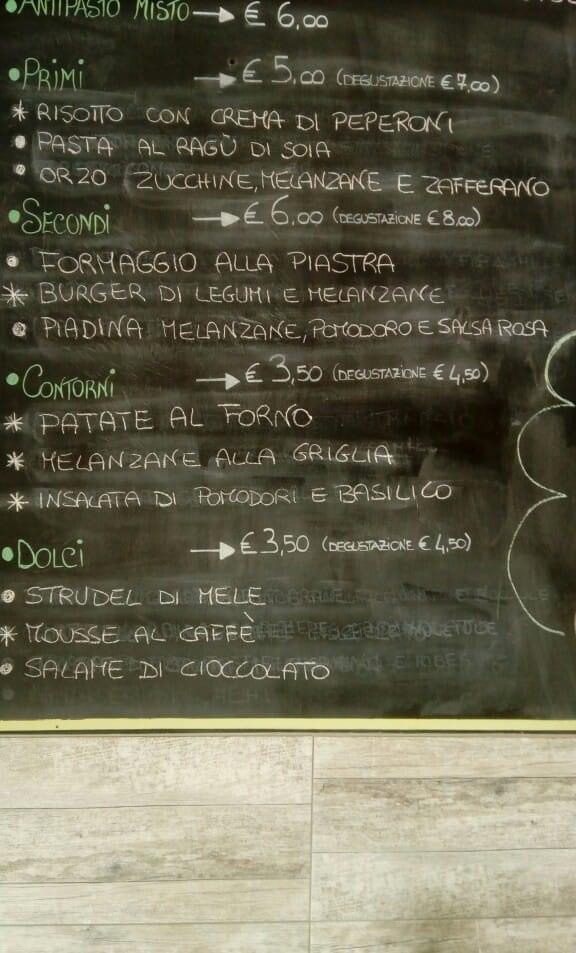 • ANTIPASTO MISTO → € 6,00
• PRIMI → € 5,00 (DEGUSTAZIONE € 7,00)
* RISOTTO CON CREMA DI PEPERONI
• PASTA AL RAGÙ DI SOIA
• ORZO ZUCCHINE, MELANZANE E ZAFFERANO
• SECONDI → € 6,00 (DEGUSTAZIONE € 8,00)
• FORMAGGIO ALLA PIASTRA
* BURGER DI LEGUMI E MELANZANE
• PIADINA MELANZANE, POMODORO E SALSA ROSA
• CONTORNI → € 3,50 (DEGUSTAZIONE € 4,50)
* PATATE AL FORNO
* MELANZANE ALLA GRIGLIA
* INSALATA DI POMODORI E BASILICO
• DOLCI → € 3,50 (DEGUSTAZIONE € 4,50)
• STRUDEL DI MELE
* MOUSSE AL CAFFÈ
• SALAME DI CIOCCOLATO